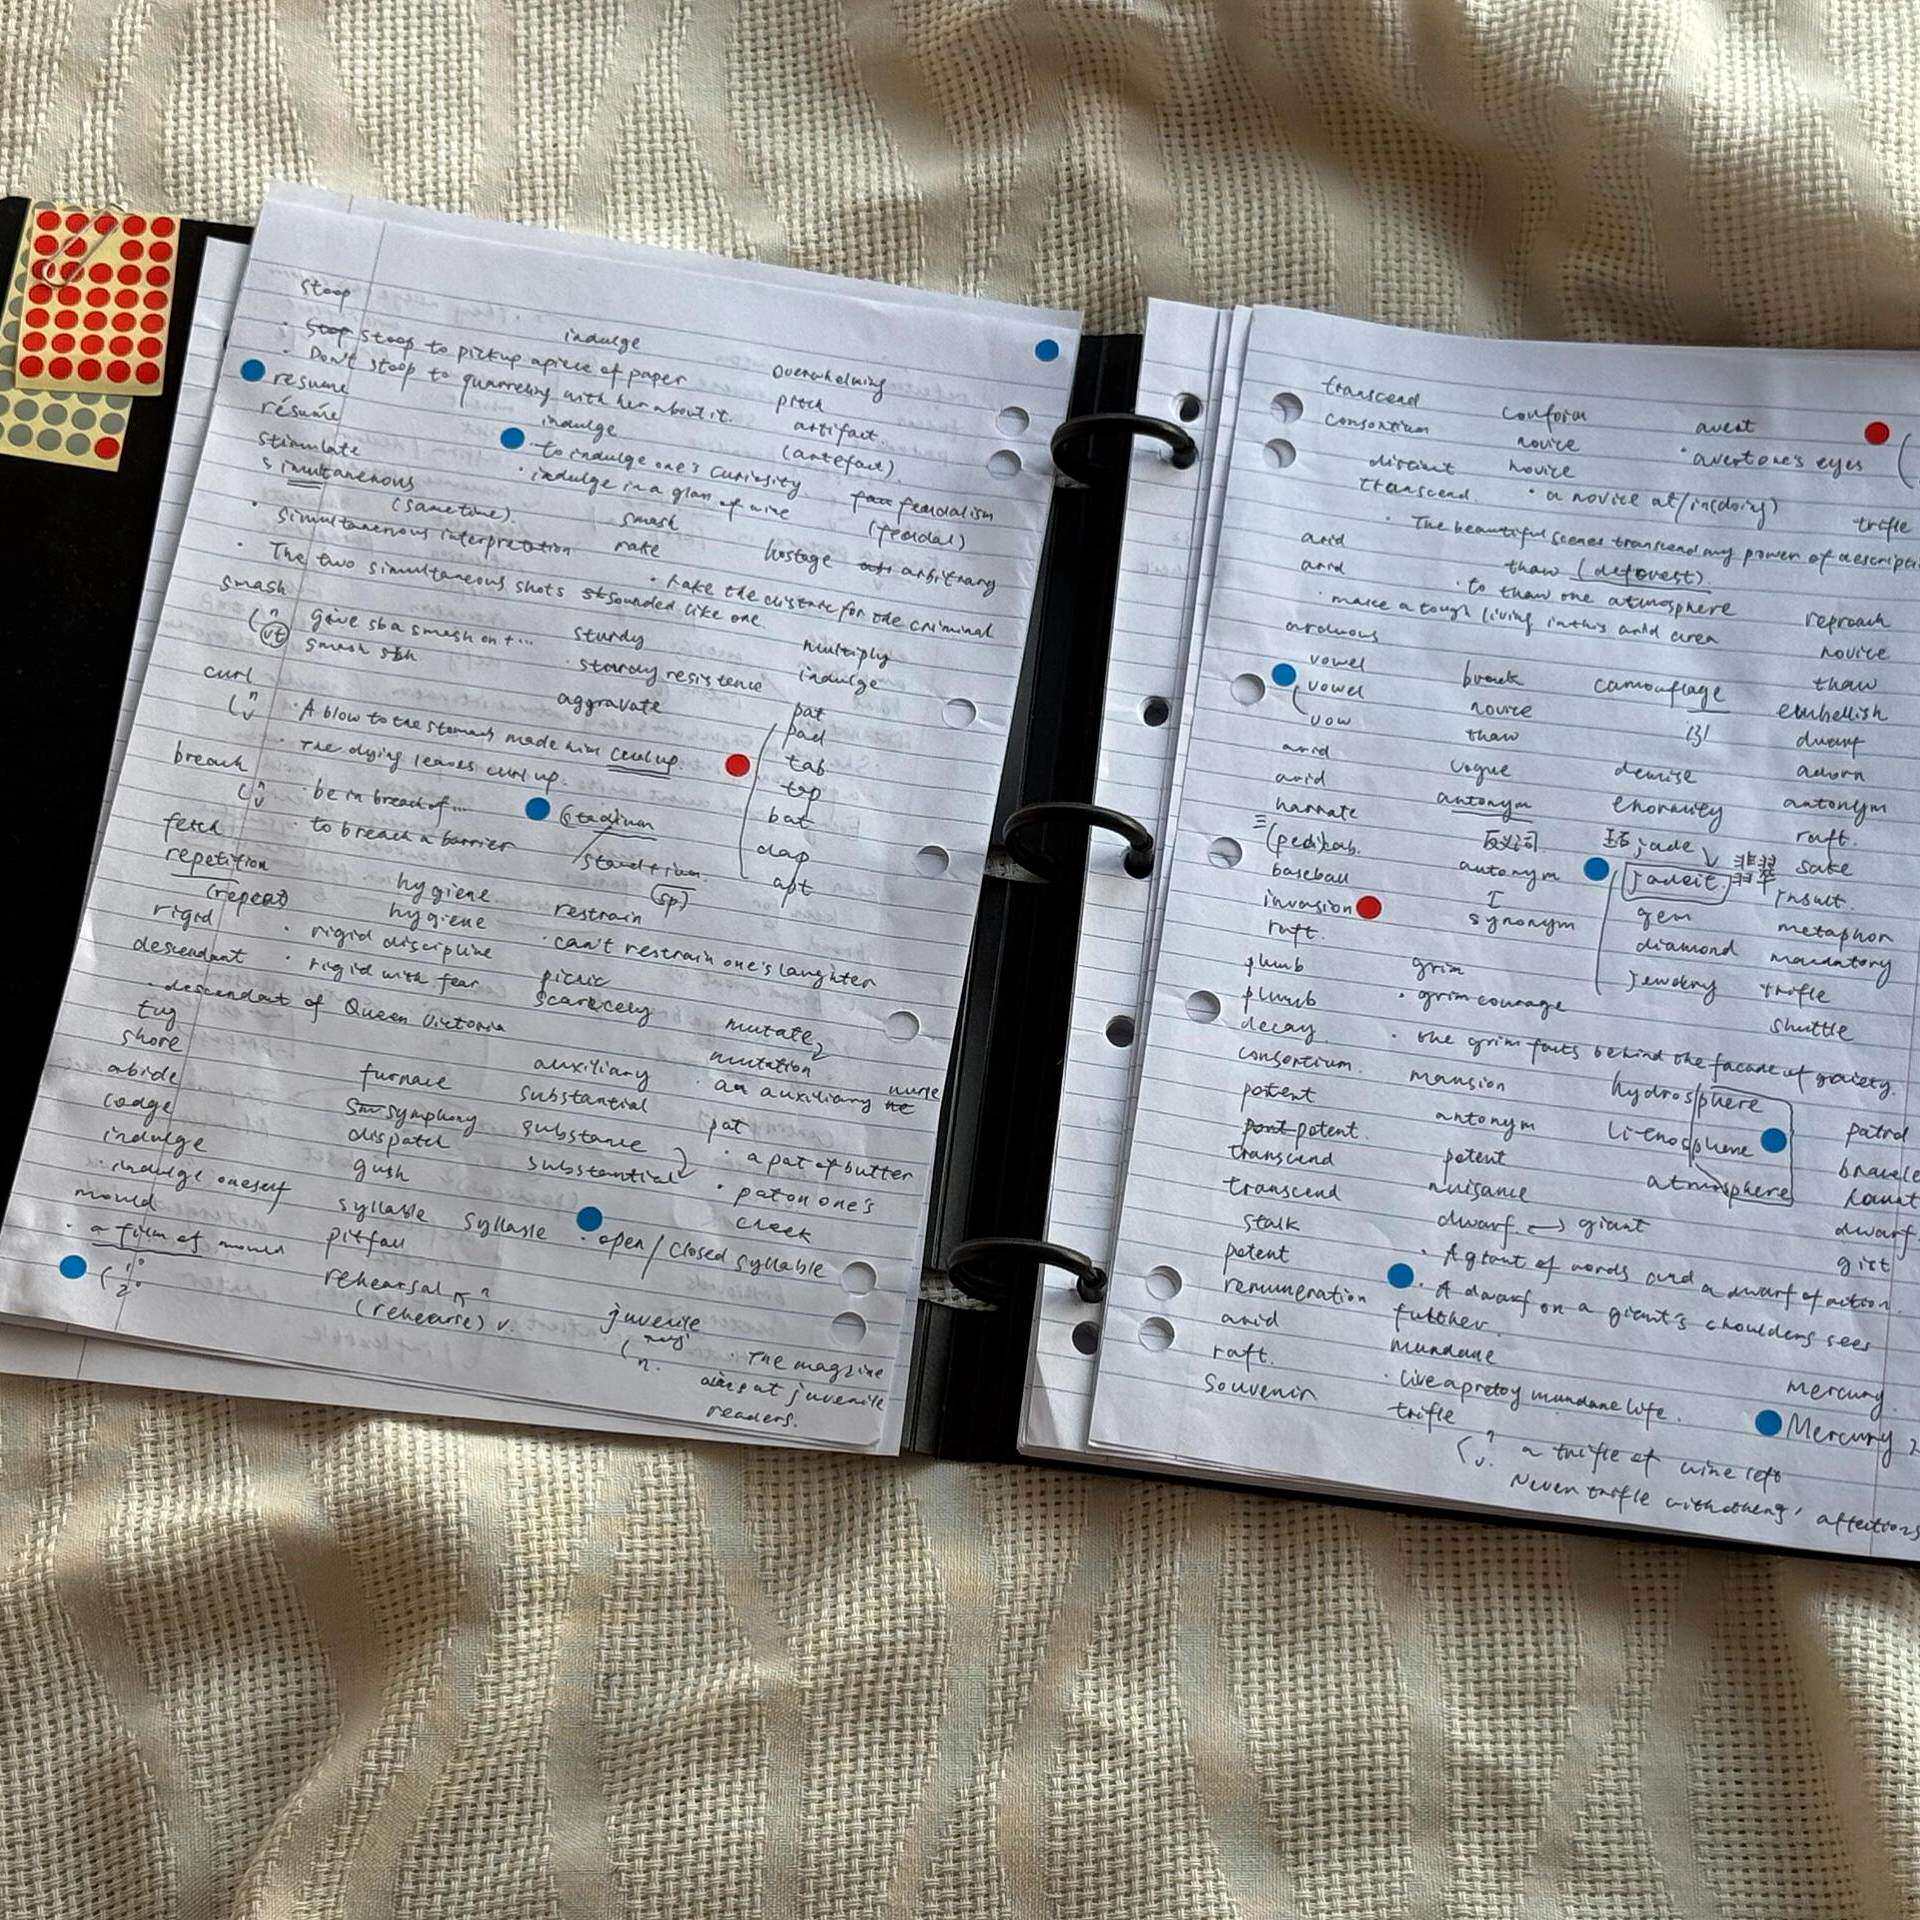 stoop
indulge
Stop stoop to pickup apiece of paper
overwhelming
Don't stoop to quarreling with her about it.
pitch
resume
indulge
artifact.
résumé
to indulge one's curiosity
(artefact).
stimulate
indulge in a glass of wine
simultanenous
feudalism
(sametime).
smash
(feudal)
simultanenous interpretation
rake
hostage
arbitrary
rake the distance for the criminal
The two simultaneous shots sounded like one.
smash
n give sb a smash on t...
sturdy
multiply
vt smash sth
sturdy resistence
indulge
curl
aggravate
pat
n
v
A blow to the stomach made him curl up.
pad
The dying leaves curl up.
tab
breach
tap
n
v
be in breach of...
Stadium
bat
to breach a barrier
clap
fetch
(sp)
apt
repetition
hygiene
restrain
(repeat)
hygiene
can't restrain one's laughter
rigid
rigid discipline
picnic
descendant
rigid with fear
scarecely
descendant of Queen Victoria
mutate
tug
mutation
shore
auxiliary
an auxiliary nurse
abide
furnace
substantial
symphony
substance
pat
indulge
dispatch
substantial
a pat of butter
indulge oneself
gush
pat on one's
cheek
mould
syllable
syllable
open/closed syllable
a film of mould
pitfall
1°
2°
rehearsal n
(rehearse) v.
juvenile
n.
The magzine
aims at juvenile
readers.
transcend
conform
avert
consortium
novice
avert one's eyes
distinct
novice
transcend.
a novice at/in(doing)
trifle
The beautiful scenes transcend my power of descripti
arid
thaw (deforest).
arid
to thaw one atmosphere
reproach
make a tough living in this arid area
novice
arduous
vowel
camouflage
thaw
vowel
novice
embellish
vow
thaw
dwarf
arid
vogue
demise
adorn
arid
antonym
enormity
antonym
narrate
反义词
jade
翡翠
raft.
三(pedi)cab.
autonym
jadeit
sake
baseball
synonym
gem
insult.
invasion
diamond
metaphor
raft.
jewelry
mandatory
plumb
grim
trifle
plumb
grim courage
shuttle
decay
the grim facts behind the facade of gaiety.
consortium.
mansion
hydrosphere
potent
antonym
lithosphere
patrol
potent.
potent
atmosphere
transcend
nuisance
transcend
dwarf. ↔ giant
dwarf
stalk
A giant of words and a dwarf of action.
gist
potent
A dwarf on a giant's shoulders sees
remuneration
further.
arid
mundane
raft.
live a pretty mundane life.
mercury.
souvenir
trifle
Mercury
n
v.
a trifle of wine left
Never trifle with others' affections